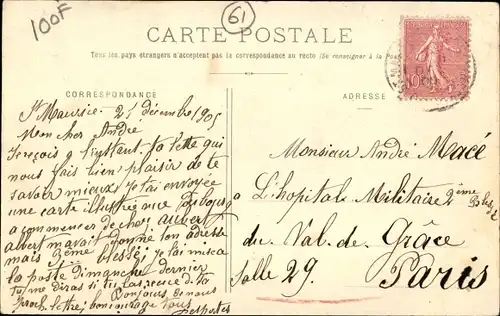 100F
61
CARTE POSTALE
Tous les pays étrangers n'acceptent pas la correspondance au recto (Se renseigner à la Poste)
CORRESPONDANCE
ADRESSE
10
St Maurice 21 décembre 1905
Mon cher André
Je reçois a l'instant ta lette qui
nous fais bien plaisir de te
savoir mieux je t'ai envoyée
une carte illustrée
a commencer de chez aubert
albert m'avait donné ton adresse
mais 2ème blessé je t'ai mis a
la poste Dimanche dernier
tu me diras si tu l'as reçue
lettre bon courage
Bonjours de nous
tous
Desportes
Monsieur André Macé
L'hopital Militaire
2ème Blessé
du Val de Grâce
Salle 29. Paris